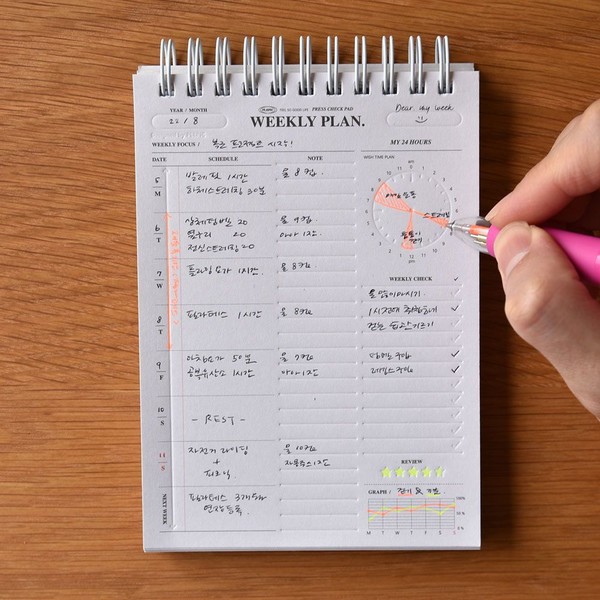 YEAR / MONTH
FEEL SO GOOD LIFE PRESS CHECK PAD
Dear. my week
22 / 8
WEEKLY PLAN.
WEEKLY FOCUS / 북촌 프로젝트 시작!
MY 24 HOURS
DATE SCHEDULE NOTE
WISH TIME PLAN
5 M 발레핏 1시간 물 8컵.
하체스트레칭 30분
6 T 상체덤벨 20 물 9컵
옆구리 20 아아 1잔
전신스트레칭 20
스트레칭
7 W 플라잉요가 1시간. 물 8컵
WEEKLY CHECK
물 많이마시기.
8 T 필라테스 1시간 물 8컵
1시전에 취침하기
걷는 습관기르기
9 F 아침요가 50분 물 7컵
공복유산소 1시간 아아 1잔
10 S - REST -
11 S 자전거 라이딩 물 10컵
+ 자몽주스 1잔
피크닉
REVIEW
NEXT WEEK 필라테스 3개월
연장등록.
GRAPH / 걷기 &
100%
50%
0%
M T W T F S S